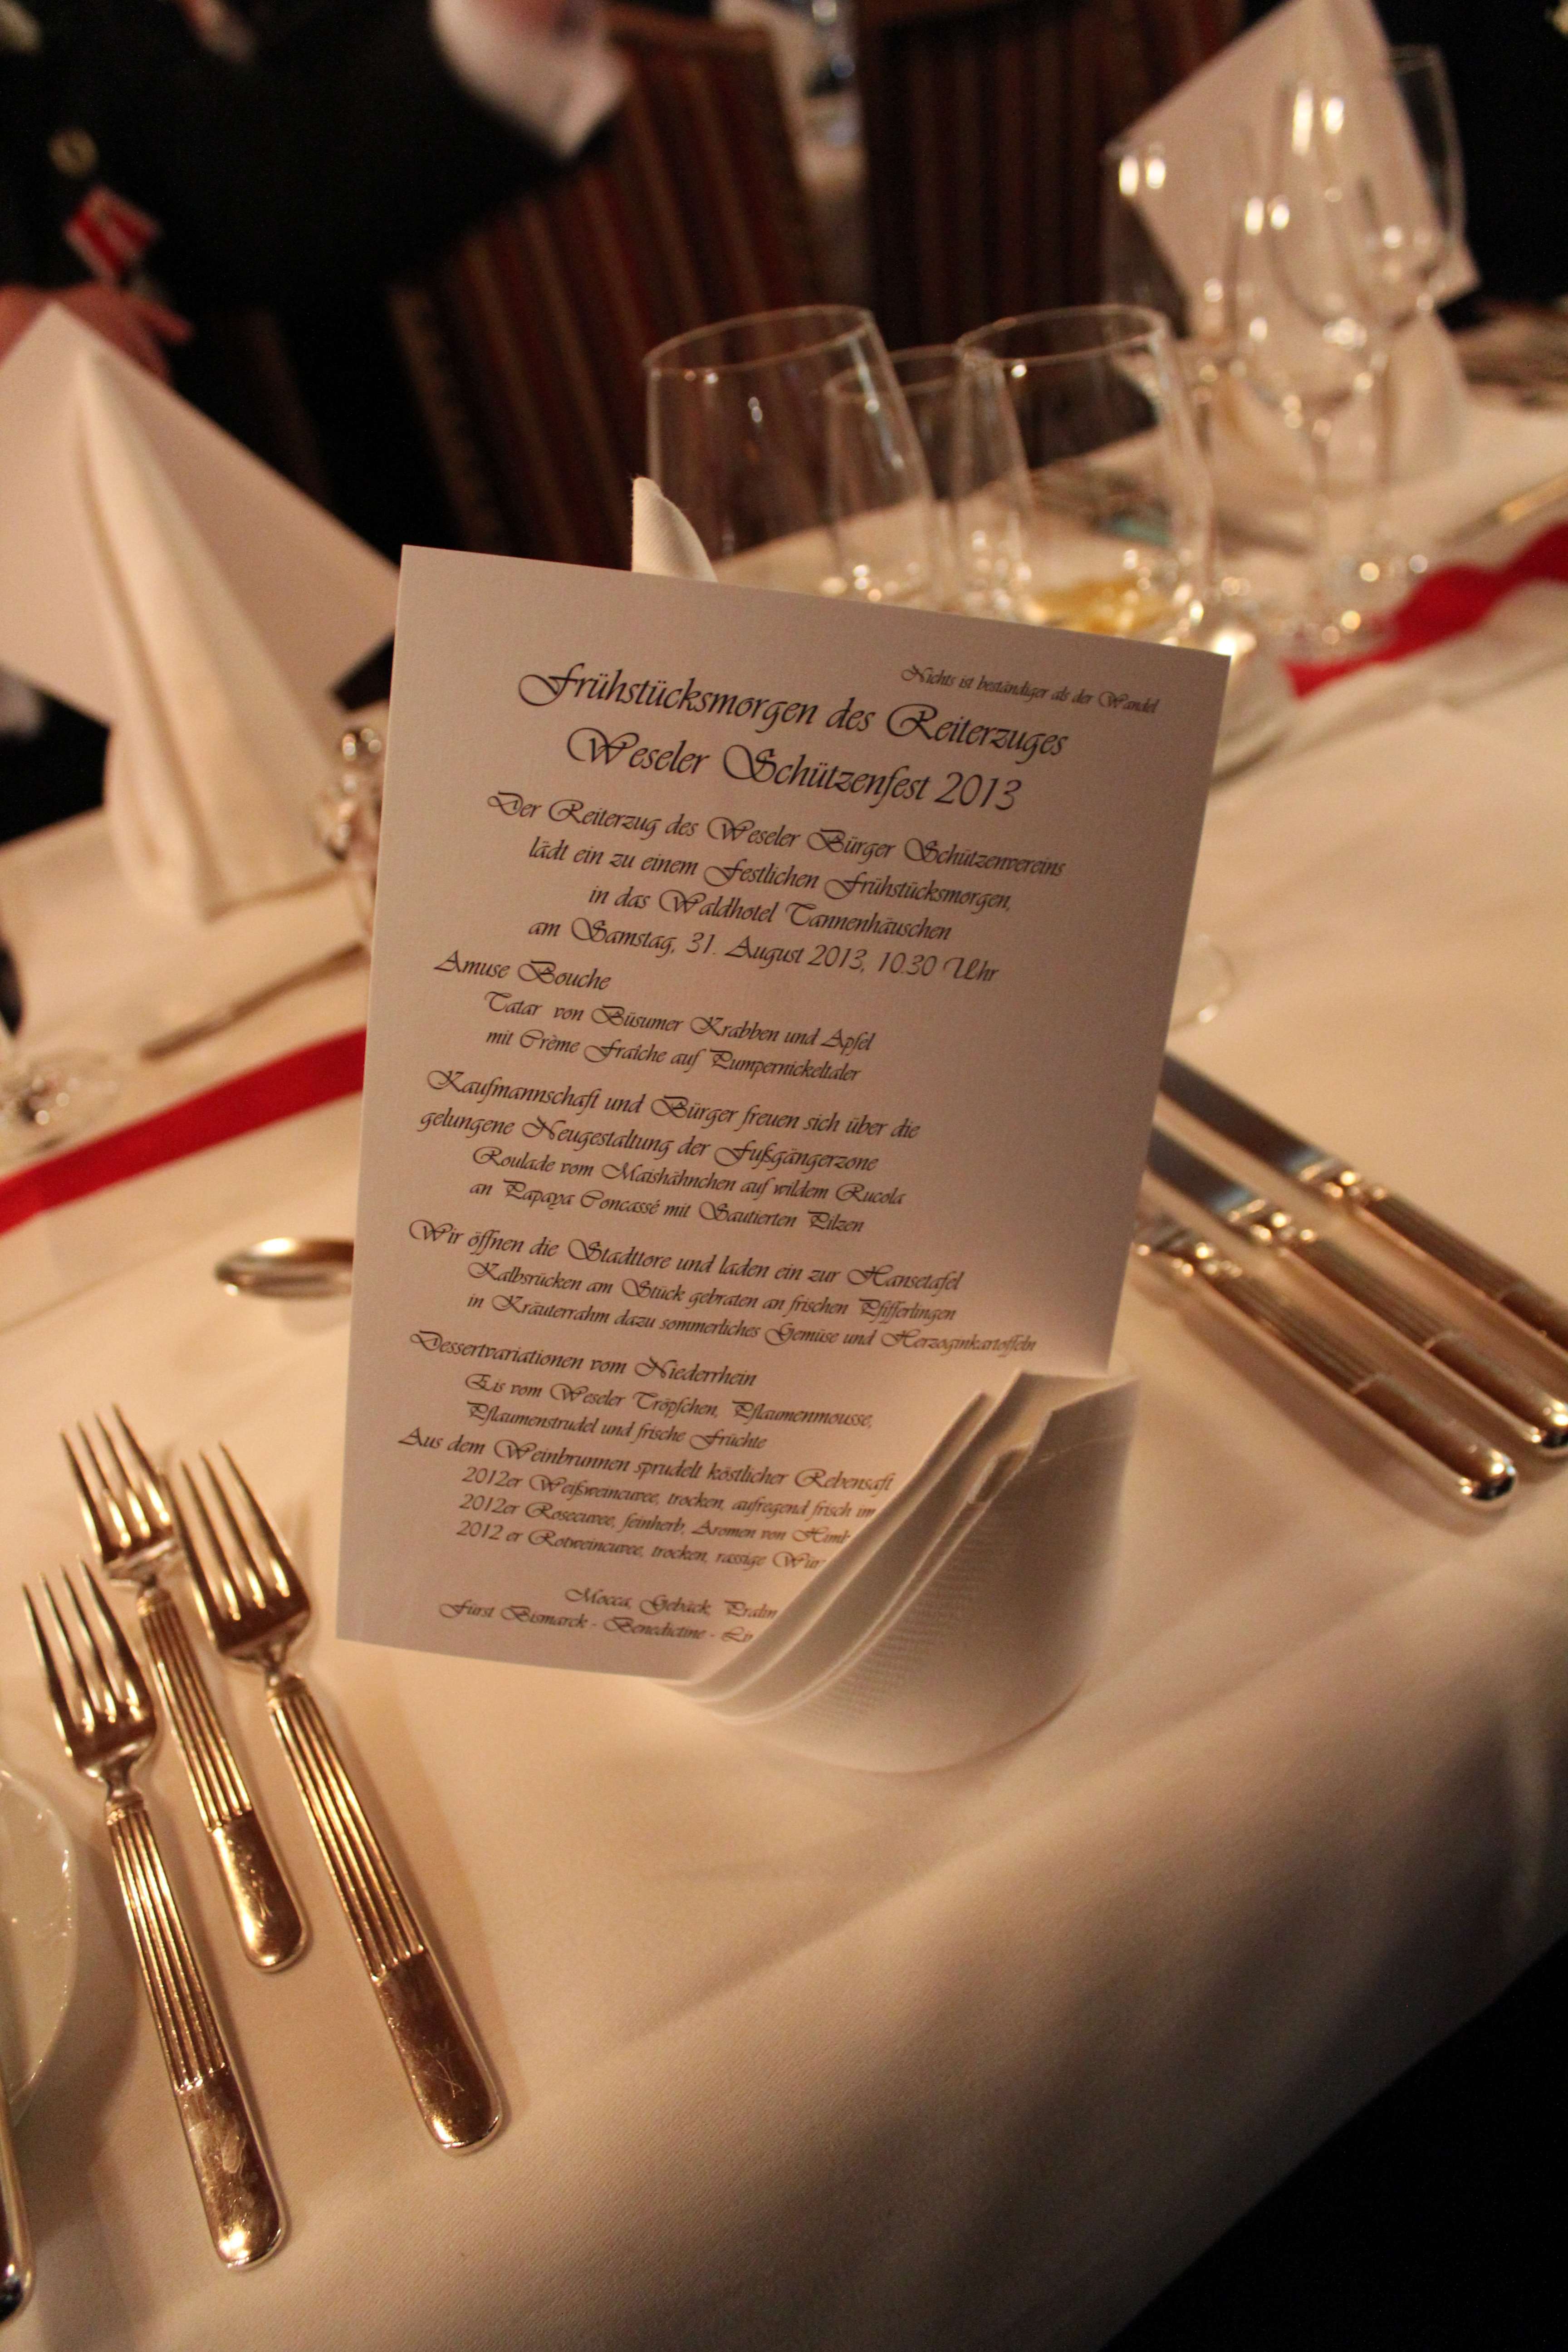 Nichts ist beständiger als der Wandel
Frühstücksmorgen des Reiterzuges
Weseler Schützenfest 2013
Der Reiterzug des Weseler Bürger Schützenvereins
lädt ein zu einem Festlichen Frühstücksmorgen,
in das Waldhotel Tannenhäuschen
am Samstag, 31. August 2013, 10.30 Uhr
Amuse Bouche
Tatar von Büsumer Krabben und Apfel
mit Crème Fraîche auf Pumpernickeltaler
Kaufmannschaft und Bürger freuen sich über die
gelungene Neugestaltung der Fußgängerzone
Roulade vom Maishähnchen auf wildem Rucola
an Papaya Concassé mit Sautierten Pilzen
Wir öffnen die Stadttore und laden ein zur Hansetafel
Kalbsrücken am Stück gebraten an frischen Pfifferlingen
in Kräuterrahm dazu sommerliches Gemüse und Herzoginkartoffeln
Dessertvariationen vom Niederrhein
Eis vom Weseler Tröpfchen, Pflaumenmousse,
Pflaumenstrudel und frische Früchte
Aus dem Weinbrunnen sprudelt köstlicher Rebensaft
2012er Weißweincuvee, trocken, aufregend frisch im
2012er Rosecuvee, feinherb, Aromen von
2012 er Rotweincuvee, trocken, rassige
Mocca, Gebäck,
Fürst Bismarck - Benedictine -